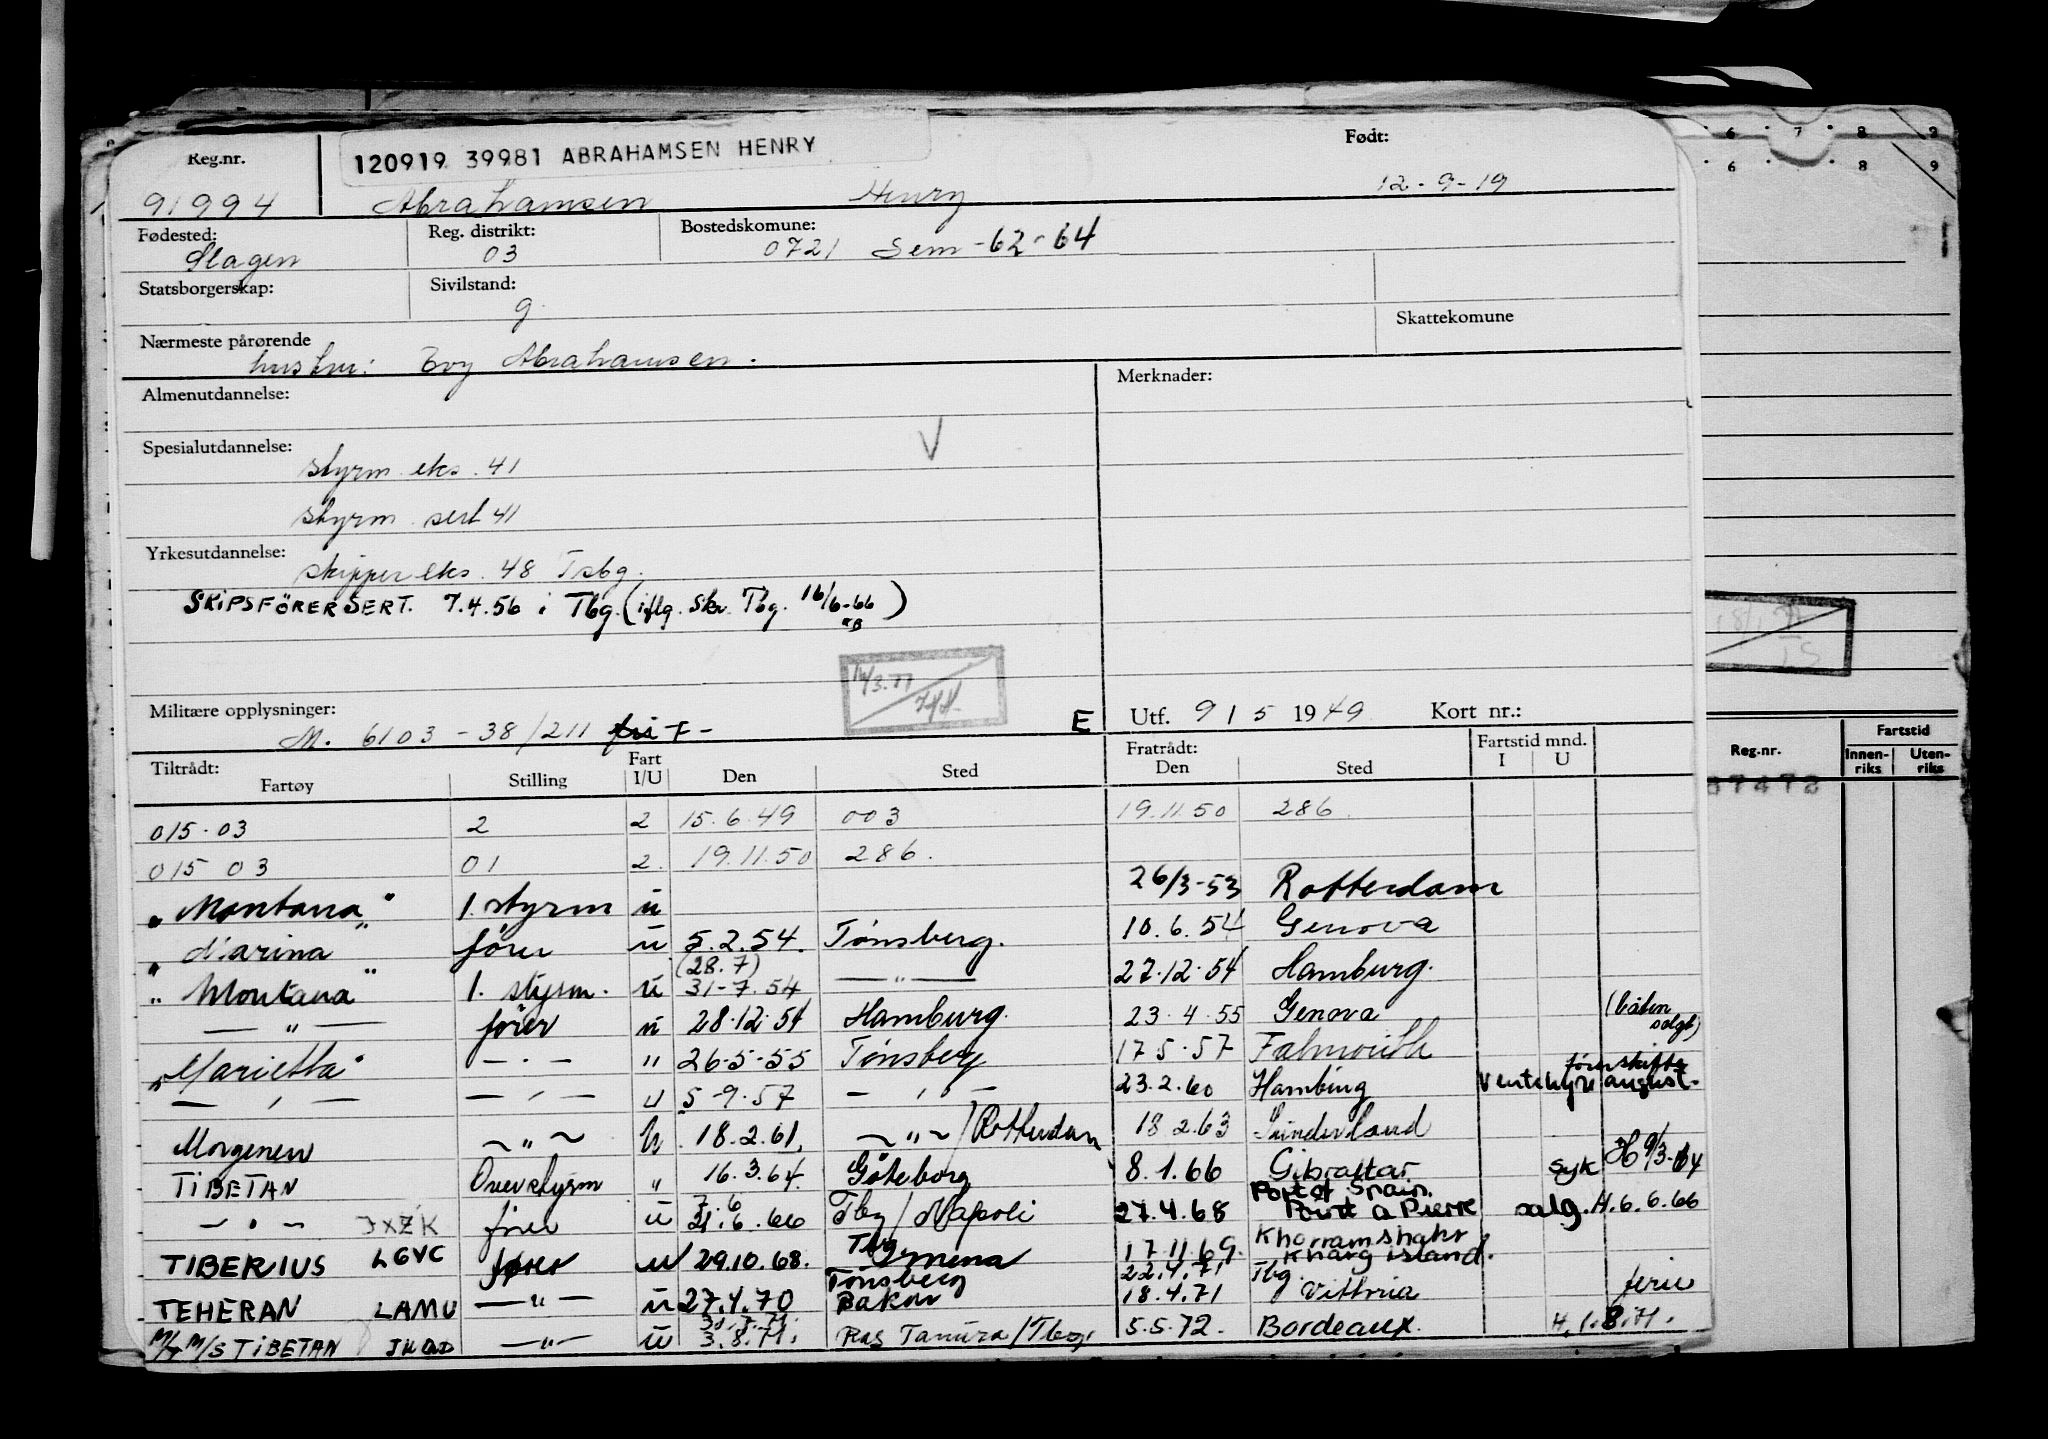 Reg.nr. 120919 39981 ABRAHAMSEN HENRY Født:
91994 Abrahamsen Henry 12-9-19
Fødested: Reg. distrikt: Bostedskomune:
Slagen 03 0721 Sem -62-64
Statsborgerskap: Sivilstand:
g.
Nærmeste pårørende Skattekomune
hustru: Evy Abrahamsen.
Almenutdannelse: Merknader:
Spesialutdannelse:
styrm. eks. 41
styrm. sert 41
Yrkesutdannelse:
skipper eks. 48 Tsbg.
SKIPSFÖRERSERT. 7.4.56 i Tbg. (iflg. Skr. Tbg. 16/6-66)
Militære opplysninger: E Utf. 9 / 5 1949 Kort nr.:
M. 6103 - 38/211
Tiltrådt: Fart Fratrådt: Fartstid mnd.
Fartøy Stilling I/U Den Sted Den Sted I U
015.03 2 2 15.6.49 003 19.11.50 286
015 03 01 2. 19.11.50 286.
"Montana" 1. styrm u 26/3-53 Rotterdam
"Marina" fører u 5.2.54. Tønsberg. 10.6.54 Genova
(28.7)
"Montana" 1. styrm. u 31-7.54 — " — 27.12.54 Hamburg.
— " — fører u 28.12.54 Hamburg. 23.4.55 Genova (båten solgt)
"Marietta" — " — " 26-5-55 Tønsberg 17.5.57 Falmouth
— " — — " — u 5-9.57 — " — 23.2.60 Hamburg
Morgenen — " — u 18.2.61. — " — / Rotterdam 18.2.63 Sunderland
TIBETAN Overstyrm " 16.3.64. Göteborg 8.1.66 Gibraltar syk H 9/3-64
7.6 Port of Spain.
— " — JXZK fører u 21.6.66 Tbg / Napoli 27.4.68 Point a Pierre salg. H. 6.6.66
Khorramshahr
TIBERIUS LGVC fører u 29.10.68. 17.11.69. Kharg island.
Tønsberg 22.4.71 Tbg.
TEHERAN LAMU — " — u 27.1.70 Dakar 18.4.71 Vittoria ferie
M/S TIBETAN — " — u 3.8.71. Ras Tanura / Tbg. 5.5.72. Bordeaux. H. 1.8.71.
6 7 8 9
6 8 9
Fartstid
Reg.nr. Innen-riks Uten-riks